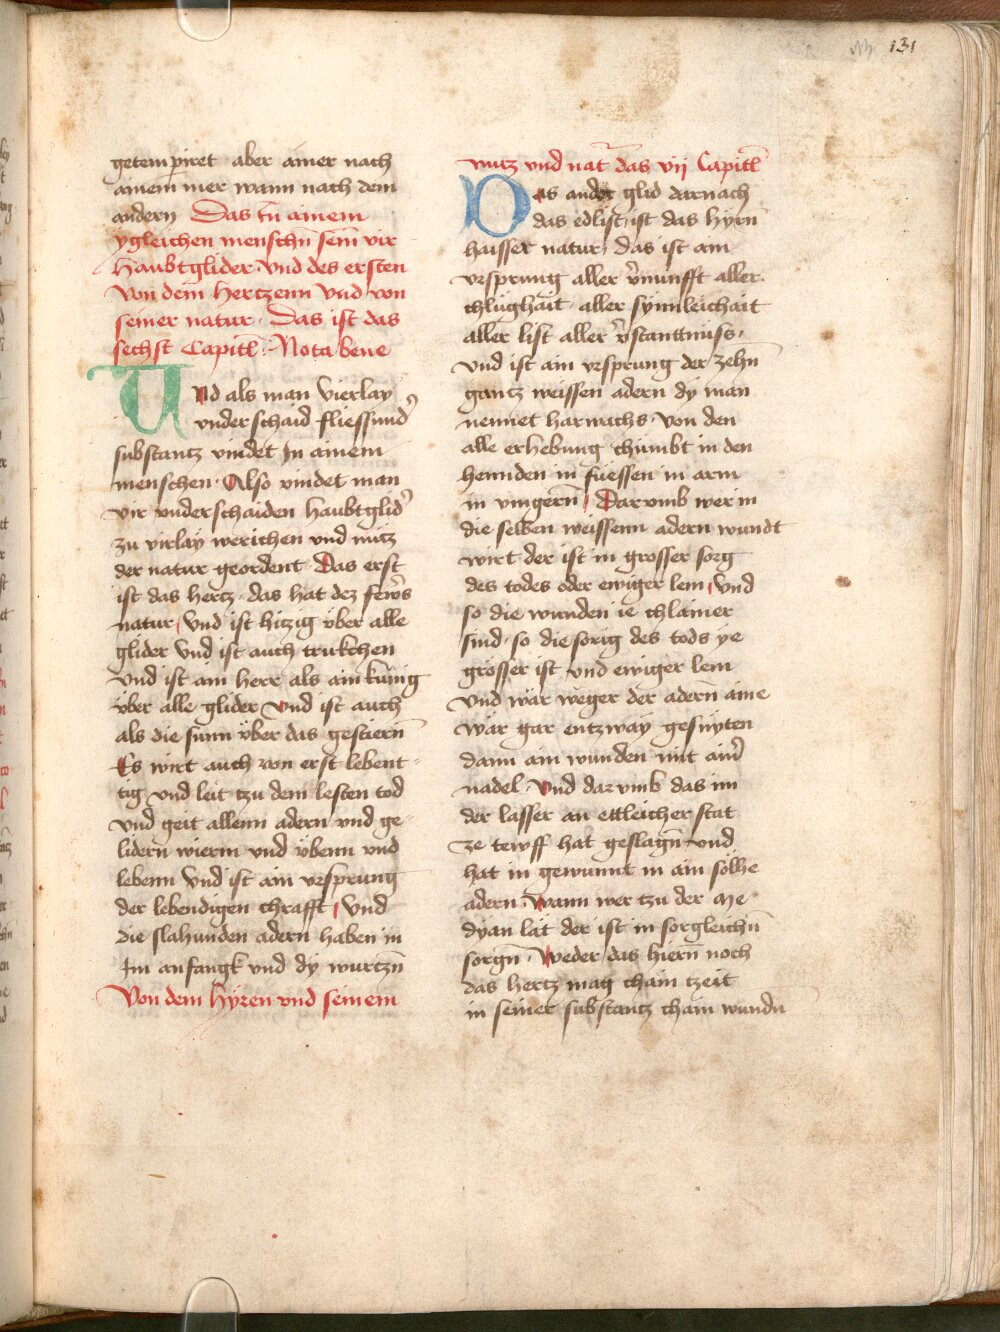 131
getempiret aber ainer nach
ainem mer wann nach dem
andern Das in ainem
ygleichen menschn̄ sein vir
haubtglider · vnd des ersten
Von dem hertzenn vnd von
seiner natur · Das ist das
sechst Capitl̄ · Nota bene
Vnd als man vierlay
vnderschaid fliessund'
substantz vindet In ainem
menschen · Also vindet man
vir vnderschaiden haubtglid'
zu virlay werichen vnd nutz
der natur geordent Das erst
ist das hertz · das hat dez fewrs
natur vnd ist hitzig über alle
glider vnd ist auch trukchen
vnd ist ain herr als ain kunig
über alle glider vnd ist auch
als die sunn über das gestiern̄
Es wirt auch von erst lebent
tig vnd leit tzu dem lesten tod
vnd geit allenn adern vnd ge-
lidern wierm vnd übenn vnd
lebenn vnd ist ain vrsprung
der lebendigen chrafft vnd
die slahunden adern haben in
Im anfangk vnd dy wurtzn̄
Von dem hyren vnd seinem
nutz vnd nat̄ das vij Capitl̄
Das ander glid darnach
das edlist ist das hyrn
haisser natur · das ist ain
vrsprung aller v̓nunfft aller
chlughait · aller synnleichait
aller list aller v̓stanttnuss ·
vnd ist ain vrsprung der zehn̄
gantz weissen adern dy man
nennet harwachs · von den
alle erhebung chumbt in den
hennden in fuessen in arm
in vingern̄ Darumb wer in
die selben weissenn adern wundt
wirt der ist in grosser sorg
des todes oder ewiger lem vnd
so die wunden ie chlainer
sind · so die sorig des tods ye
grosser ist vnd ewiger lem
vnd wär weger der adern̄ aine
wär gar entzway gesniten
dann ain wunden mit ain'
nadel · vnd darumb das im
der lasser an ettleicher stat
ze tewff hat geslagn̄ vnd
hat in gewunnt in ain solhe
adern · Wann wer tzu der me
dyan lät der ist in sorgleichn̄
sorgn̄ · Weder das hiern̄ noch
das hertz mag chain tzeit
in seiner substantz chain wundn̄